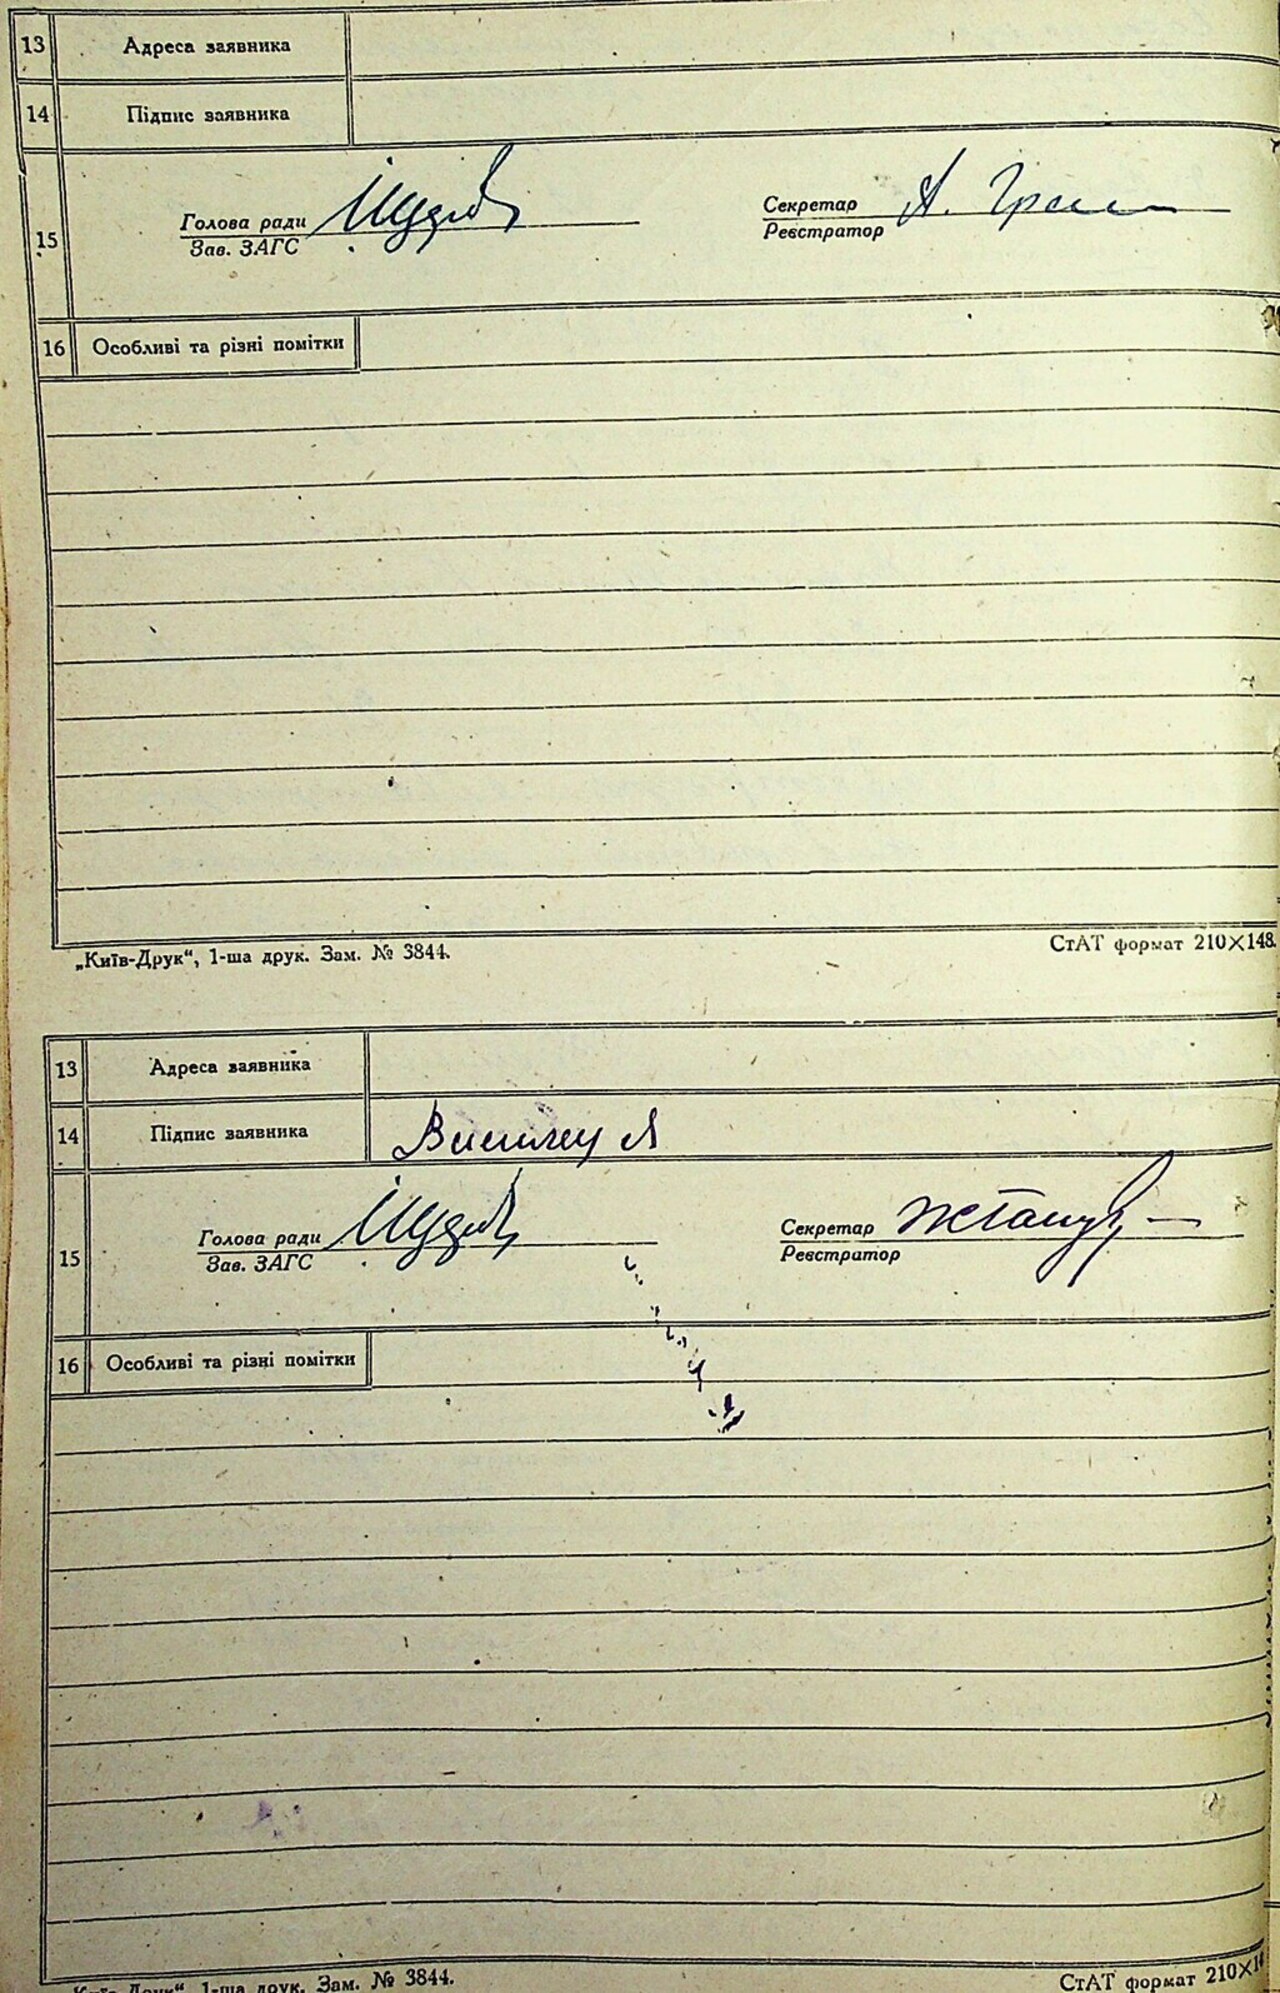 13 Адреса заявника
14 Підпис заявника
15
Голова ради
Зав. ЗАГС
Секретар А.
Реєстратор
16 Особливі та різні помітки
„Київ-Друк“, 1-ша друк. Зам. № 3844.
СтАТ формат 210×148.
13 Адреса заявника
14 Підпис заявника
15
Голова ради
Зав. ЗАГС
Секретар
Реєстратор
16 Особливі та різні помітки
Київ-Друк“, 1-ша друк. Зам. № 3844.
СтАТ формат 210×14